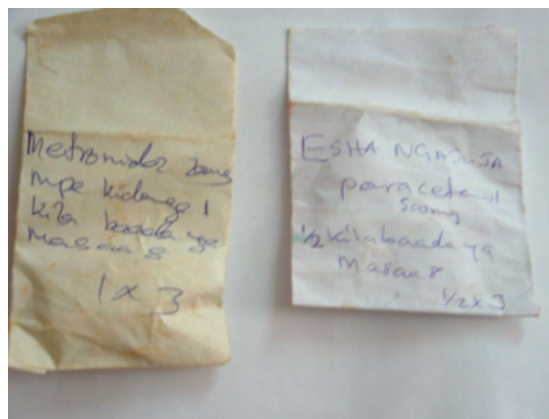 Metronidaz 200mg
mpe kidonge 1
kila baada ya
masaa 8
1 x 3
ESHA NGASUJA
paracetamol
500mg
1/2 kila baada ya
masaa 8
1/2 x 3